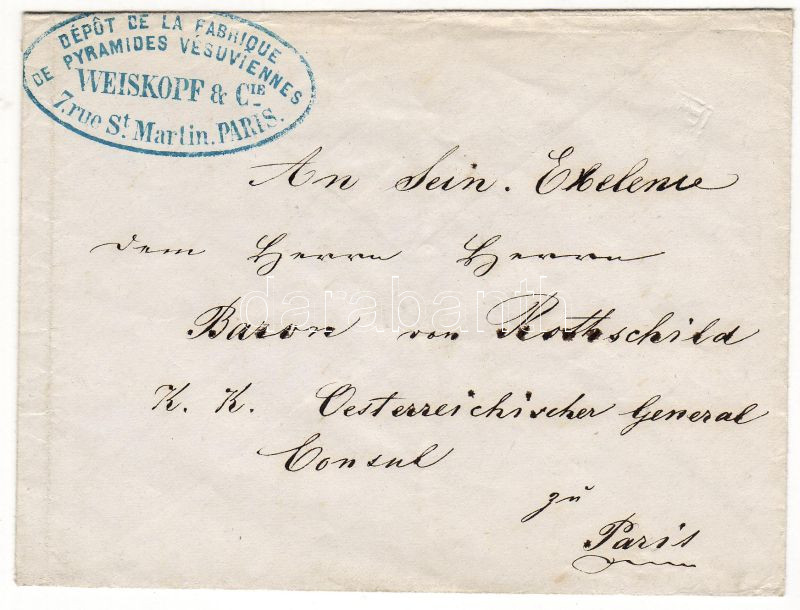 DÉPÔT DE LA FABRIQUE
DE PYRAMIDES VÉSUVIENNES
WEISKOPF & CIE
7. rue St Martin. PARIS.
An Sein. Exelenze
dem Herrn Herrn
darabanth
Baron von Rothschild
K. K. Oesterreichischer General
Consul
zu
Paris